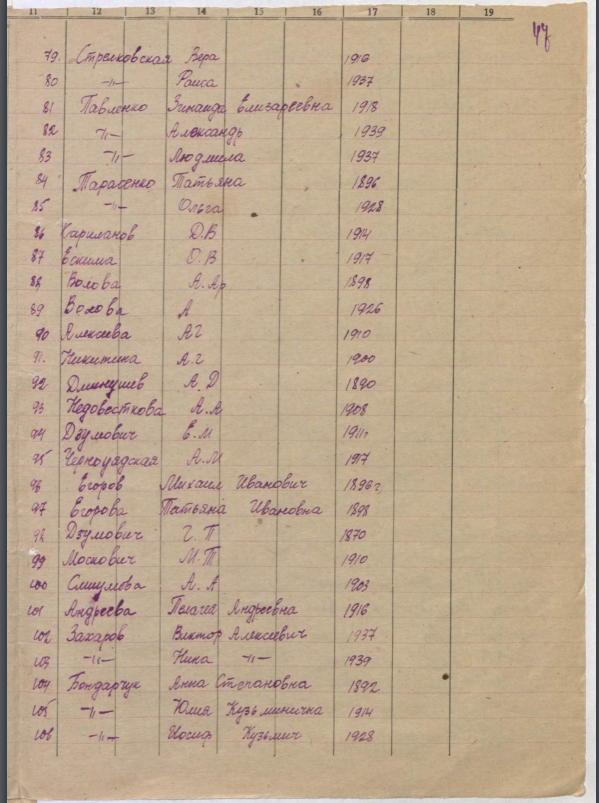 11 12 13 14 15 16 17 18 19
47
79. Стрелковская Вера 1916
80 -"- Раиса 1937
81 Павленко Зинаида Елизареевна 1918
82 -"- Александь 1939
83 -"- Людмила 1937
84 Тарасенко Татьяна 1896
85 -"- Ольга 1928
86 Кариланов Д.В 1914
87 Ескима О.В 1917
88 Волова А. Ар 1898
89 Волова А 1926
90 Алексева АГ 1910
91. Никитина А.г 1900
92 А.Д 1890
93 Недовесткова А.А 1908
94 Дзумович Е.М
95 Черноуядская А.М 1917
96 Егоров Михаил Иванович 1896г
97 Егорова Татьяна Ивановна 1898
98 Дзумович Г. П 1870
99 Москович М.Т 1910
100 А. А 1903
101 Андреева Пелагея Андреевна 1916
102 Захаров Виктор Алексеевич 1937
103 -"- Нина -"- 1939
104 Бондарчук Анна Степановна 1892
105 -"- Юлия Кузьминична 1914
106 -"- Иосиф Кузьмич 1928